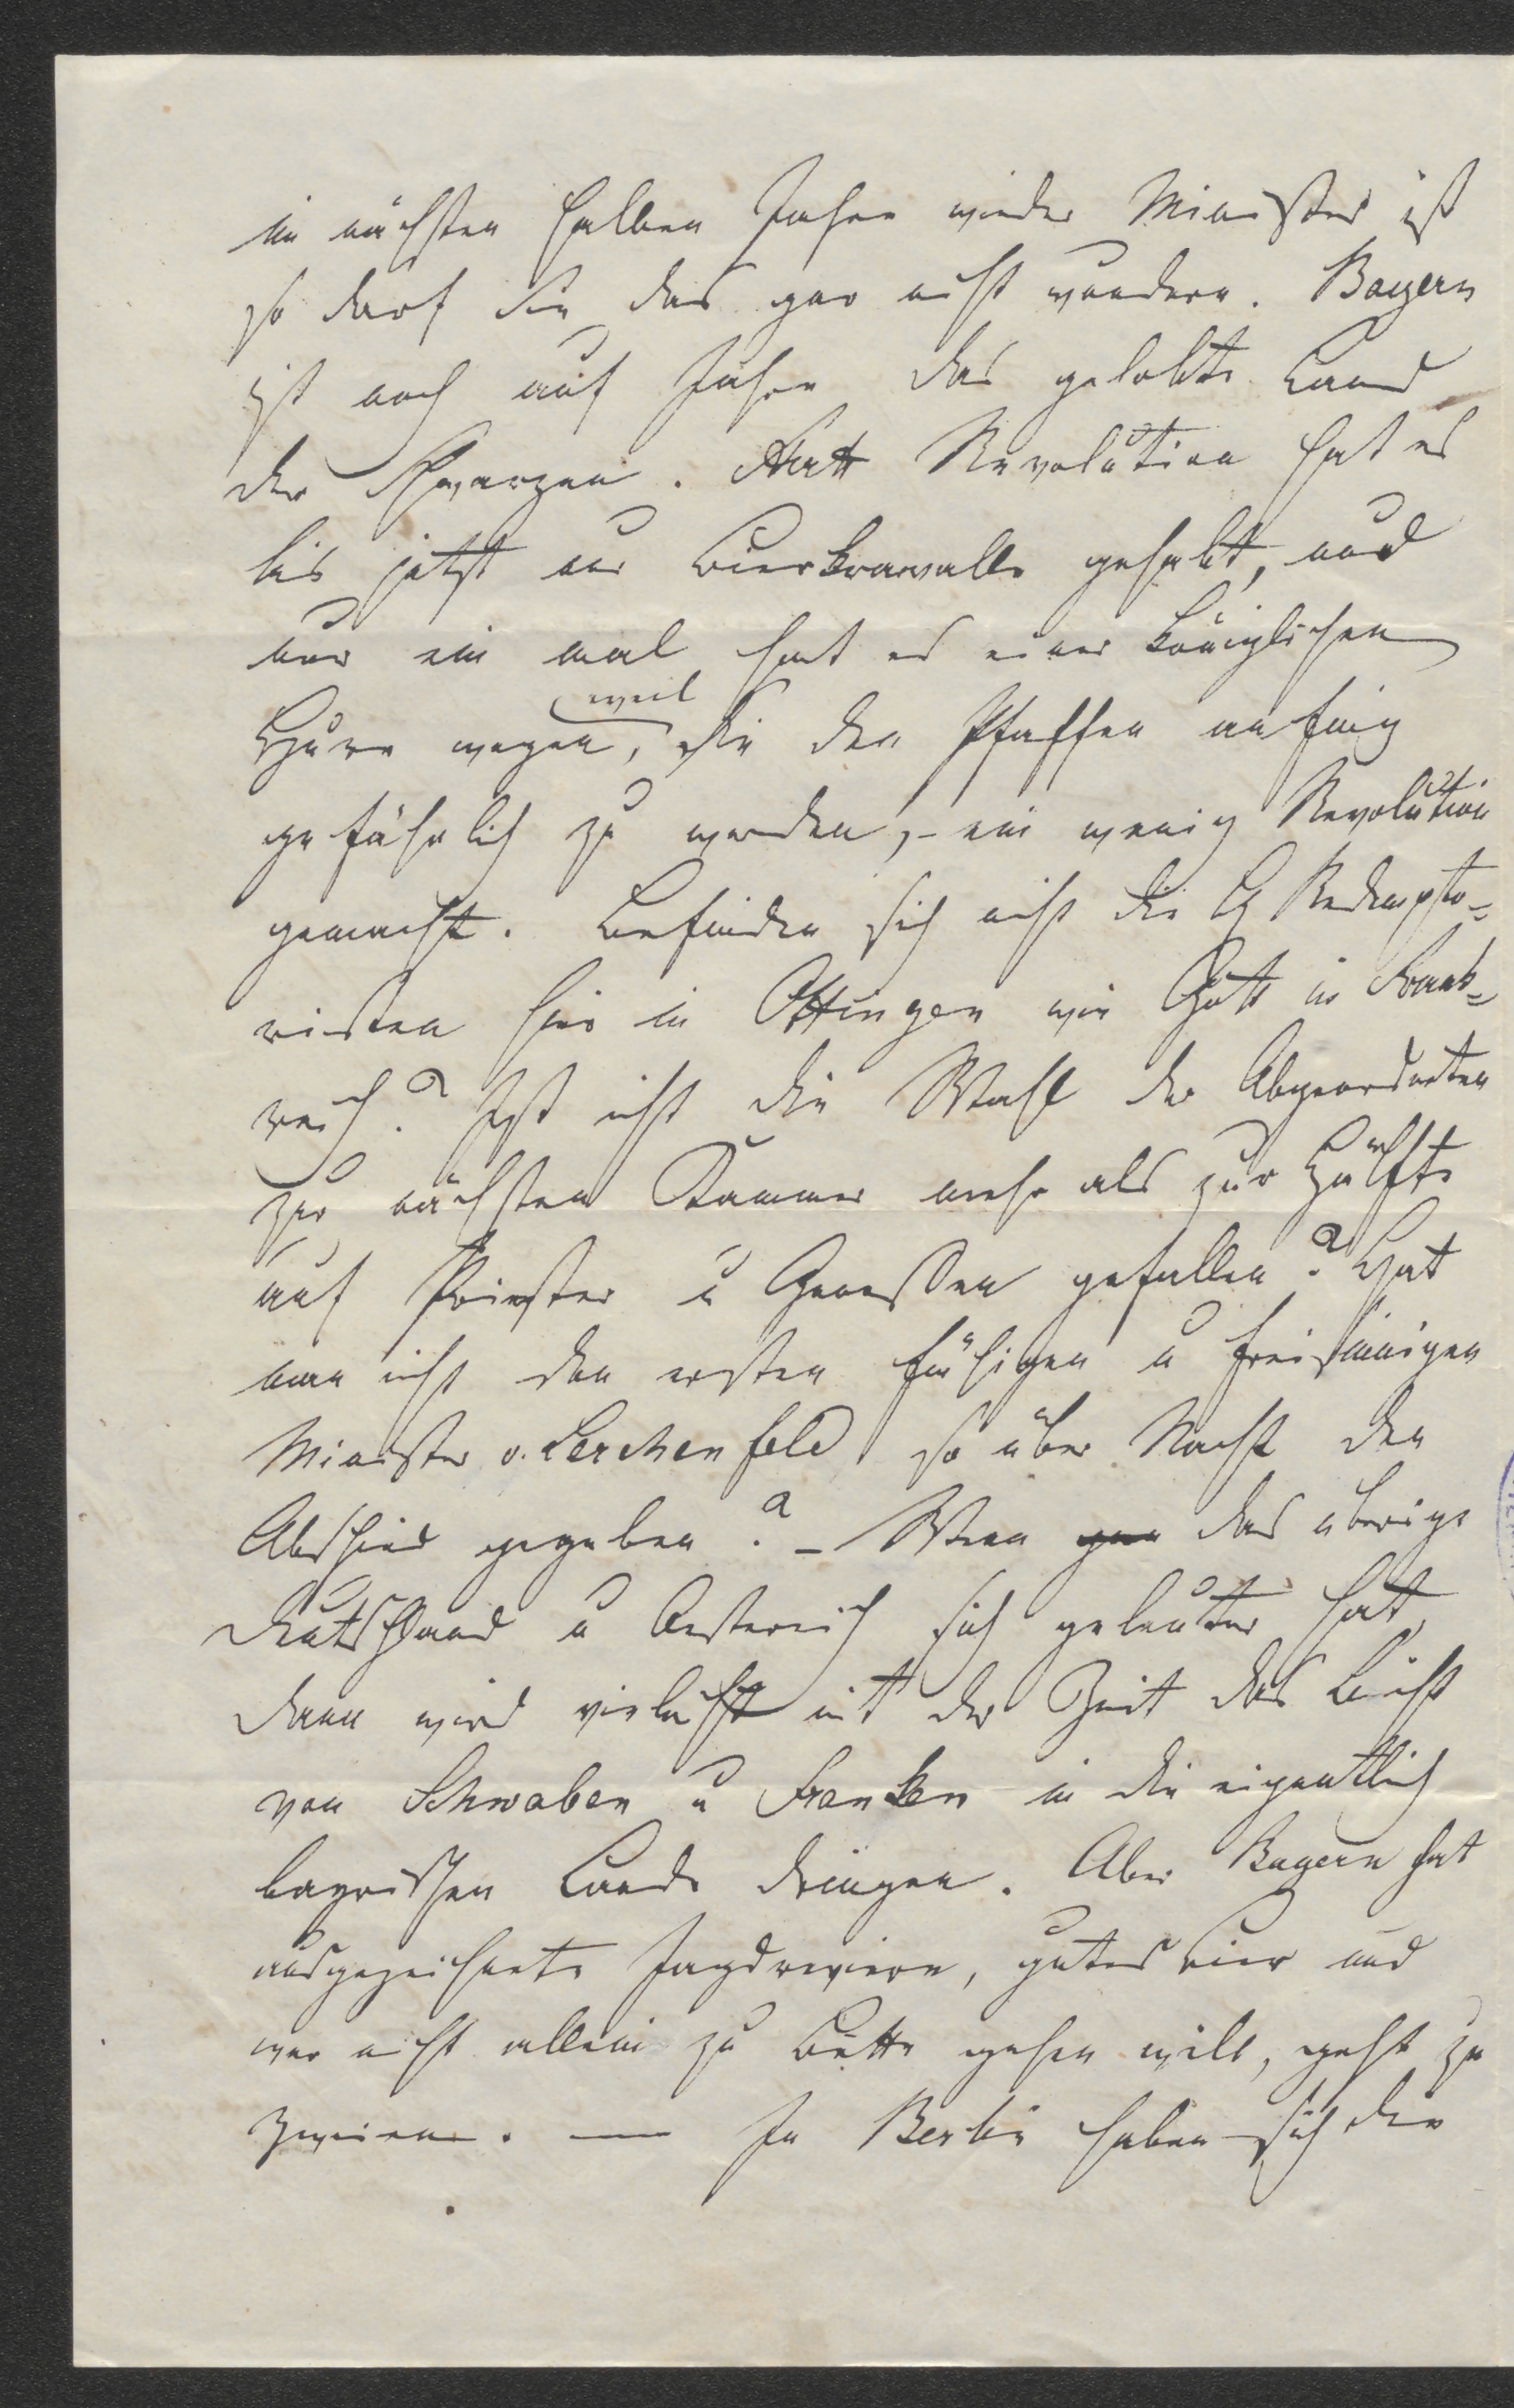 im nächsten halben Jahre wieder Minister ist
so darf Sie das gar nicht wundern. Bayern
ist noch auf Jahre das gelobte Land
der Schwarzen. Statt Revolution hat es
bis jetzt nur Bierkrawalle gehabt, und
nur ein mal hat es einer königlichen
weil
Hure wegen, die den Pfaffen anfing
gefährlich zu werden, – ein wenig Revolution
gemacht. Befinden sich nicht die Redempto-
risten hier in Ottingen wie Gott in Frank-
reich? Ist nicht die Wahl der Abgeordneten
zur nächsten Kammer mehr als zur Hälfte
auf Priester u Genossen gefallen? Hat
man nicht den ersten fähigen u freisinnigen
Minister v. Lerchenfeld so über Nacht den
Abschied gegeben? – Wenn gan das übrige
Deutschland u Oesterreich sich geläutert hat,
dann wird vieleicht mit der Zeit das Licht
von Schwaben u Franken in die eigentlich
bayrischen Lande dringen. Aber Bayern hat
ausgezeichnete Jagdreviere, gutes Bier und
wer nicht allein zu Bette gehen will, geht zu
zweien. — In Berlin haben sich die